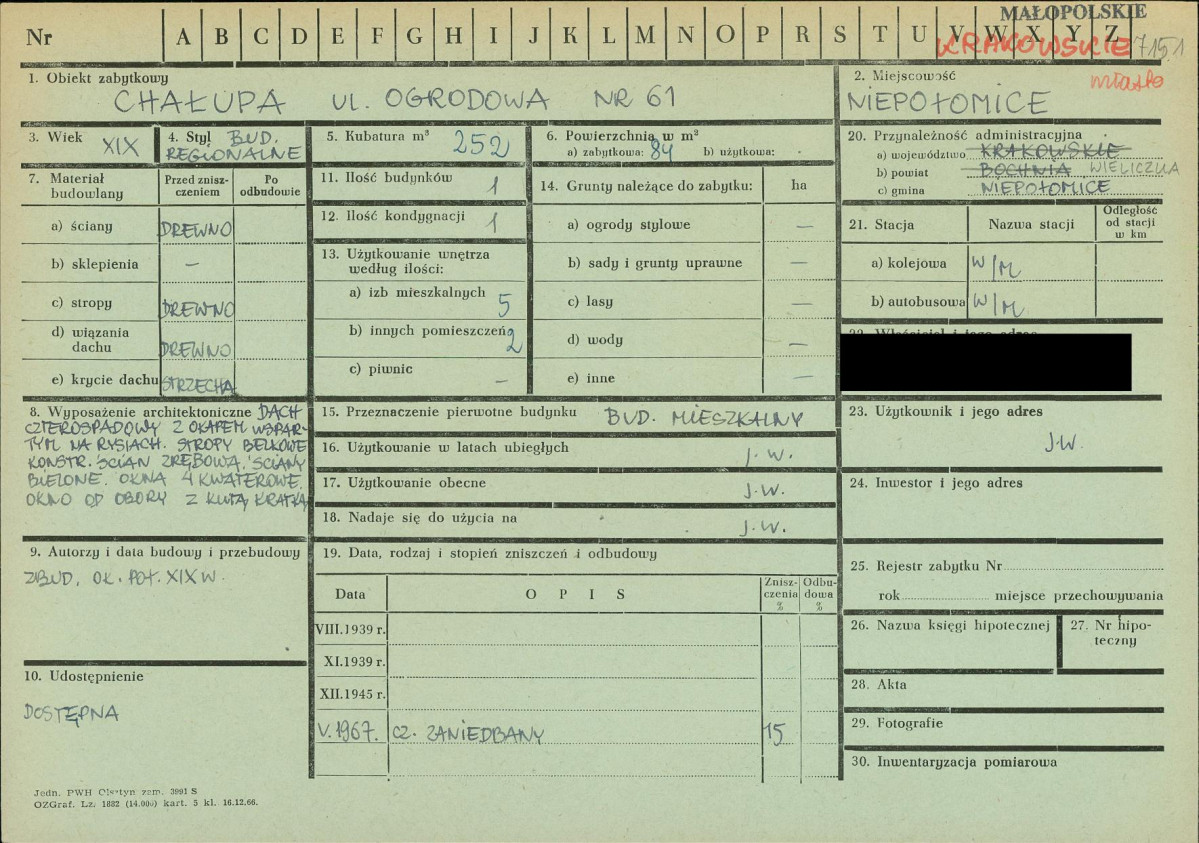 MAŁOPOLSKIE
Nr A B C D E F G H I J K L M N O P R S T U V W X Y Z
KRAKOWSKIE 7151
miasto
1. Obiekt zabytkowy
CHAŁUPA UL. OGRODOWA NR 61
2. Miejscowość
NIEPOŁOMICE
3. Wiek XIX
4. Styl BUD.
REGIONALNE
5. Kubatura m³ 252
6. Powierzchnia w m²
a) zabytkowa: 84 b) użytkowa:
20. Przynależność administracyjna
a) województwo KRAKOWSKIE
b) powiat BOCHNIA WIELICZKA
c) gmina NIEPOŁOMICE
7. Materiał budowlany
Przed zniszczeniem
Po odbudowie
a) ściany DREWNO
b) sklepienia —
c) stropy DREWNO
d) wiązania dachu DREWNO
e) krycie dachu STRZECHA
11. Ilość budynków 1
12. Ilość kondygnacji 1
13. Użytkowanie wnętrza
według ilości:
a) izb mieszkalnych 5
b) innych pomieszczeń 2
c) piwnic —
14. Grunty należące do zabytku: ha
a) ogrody stylowe —
b) sady i grunty uprawne —
c) lasy —
d) wody —
e) inne —
21. Stacja Nazwa stacji Odległość od stacji w km
a) kolejowa W/M
b) autobusowa W/M
22. Właściciel i jego adres
8. Wyposażenie architektoniczne DACH
CZTEROSPADOWY Z OKAPEM WSPAR-
TYM NA RYSIACH. STROPY BELKOWE
KONSTR. ŚCIAN ZRĘBOWA, ŚCIANY
BIELONE. OKNA 4 KWATEROWE.
OKNO OD OBORY Z KUTĄ KRATKĄ
15. Przeznaczenie pierwotne budynku BUD. MIESZKALNY
16. Użytkowanie w latach ubiegłych J.W.
17. Użytkowanie obecne J.W.
18. Nadaje się do użycia na J.W.
23. Użytkownik i jego adres
J.W.
24. Inwestor i jego adres
9. Autorzy i data budowy i przebudowy
ZBUD. OK. POŁ. XIX W.
10. Udostępnienie
DOSTĘPNA
19. Data, rodzaj i stopień zniszczeń i odbudowy
Data O P I S Zniszczenia % Odbudowa %
VIII.1939 r.
XI.1939 r.
XII.1945 r.
V.1967. CZ. ZANIEDBANY 15
25. Rejestr zabytku Nr
rok miejsce przechowywania
26. Nazwa księgi hipotecznej
27. Nr hipoteczny
28. Akta
29. Fotografie
30. Inwentaryzacja pomiarowa
Jedn. PWH Olsztyn zam. 3991 S
OZGraf. Lz. 1882 (14.000) kart. 5 kl. 16.12.66.